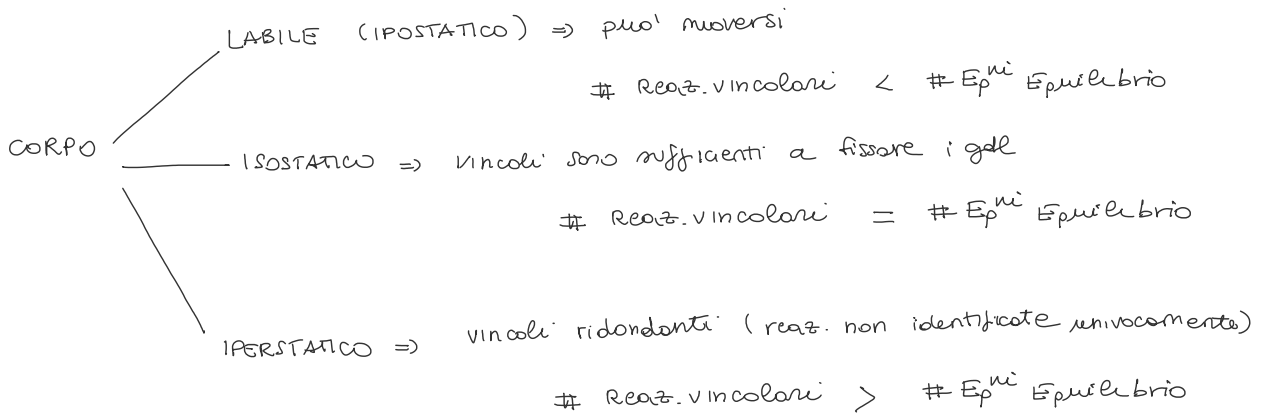 LABILE (IPOSTATICO) ⇒ può muoversi
# Reaz. vincolari < # Eq^ni Equilibrio
CORPO
ISOSTATICO ⇒ vincoli sono sufficienti a fissare i gdl
# Reaz. vincolari = # Eq^ni Equilibrio
IPERSTATICO ⇒ vincoli ridondanti (reaz. non identificate univocamente)
# Reaz. vincolari > # Eq^ni Equilibrio